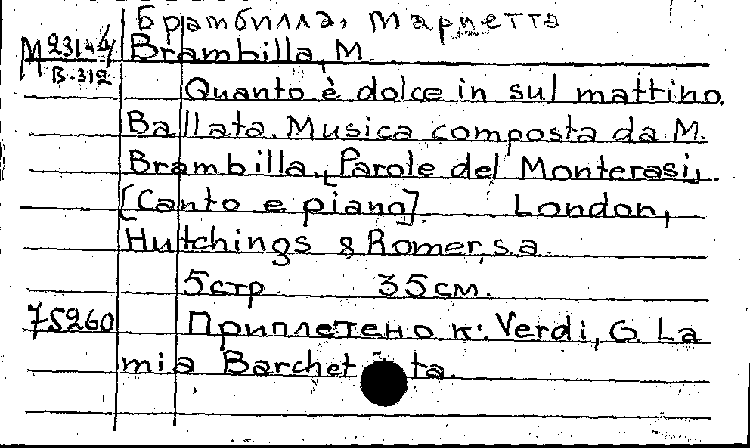 Брамбилла, Мариетта
М 23144 Brambilla, M
В-312
Quanto è dolce in sul mattino.
Ballata. Musica composta da M.
Brambilla, [Parole del Monterasi].
[Canto e piano] London,
Hutchings & Romer, s.a.
5 стр 35 см.
75260 Приплетено к: Verdi, G. La
mia Barchetta.